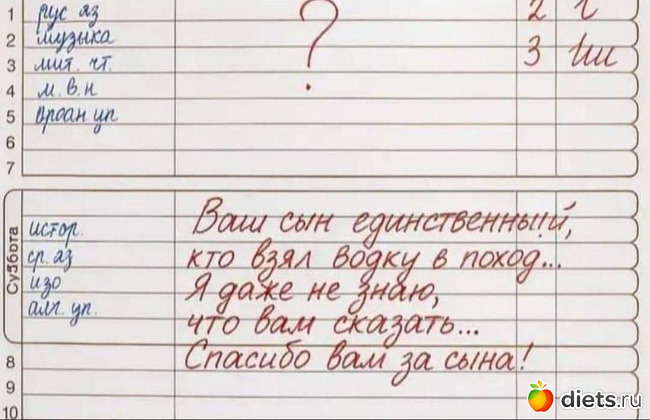 1 рус яз 2
2 музыка
3 мит. чт. ? 3
4 м.в.н
5
6
7
Суббота
истор.
ср. яз
изо
алг. уп.
Ваш сын единственный,
кто взял водку в поход...
Я даже не знаю,
что вам сказать...
Спасибо вам за сына!
8
9
10
diets.ru